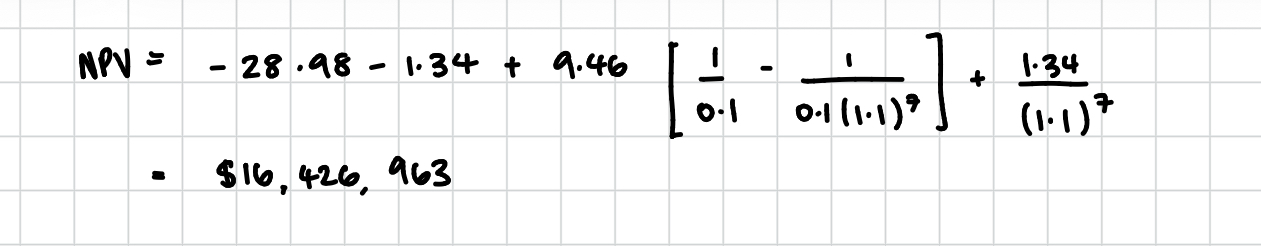 NPV = - 28.98 - 1.34 + 9.46 [ 1/0.1 - 1/0.1(1.1)⁷ ] + 1.34/(1.1)⁷
= $16,426,963